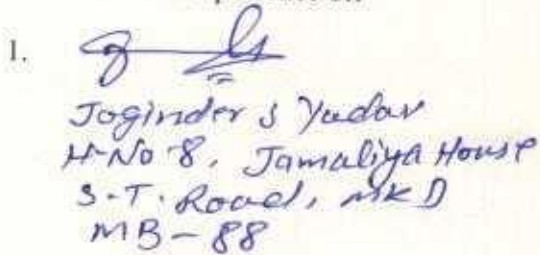 1.
Joginder S Yadav
H-No 8, Jamaliya House
S.T. Road, MKD
MB-88